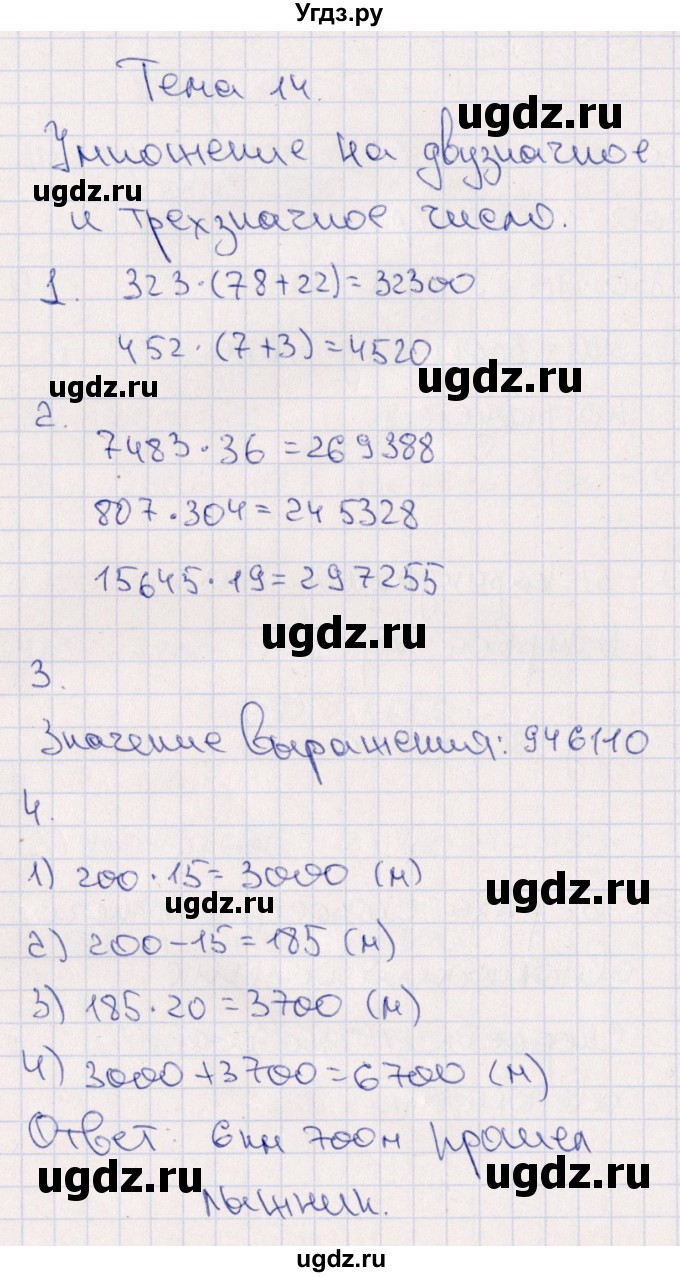 Угдз.ру
Тема 14.
ugdz.ru
Умножение на двузначное
ugdz.ru
и трехзначное число.
1. 323·(78+22)=32300
452·(7+3)=4520
ugdz.ru
ugdz.ru
2.
7483·36=269388
807·304=245328
15645·19=297255
ugdz.ru
3.
Значение выражения: 946110
4.
1) 200·15=3000 (м)
ugdz.ru
ugdz.ru
2) 200-15=185 (м)
3) 185·20=3700 (м)
4) 3000+3700=6700 (м)
Ответ: 6км 700м прошел
ugdz.ru
ugdz.ru
лыжник.
ugdz.ru